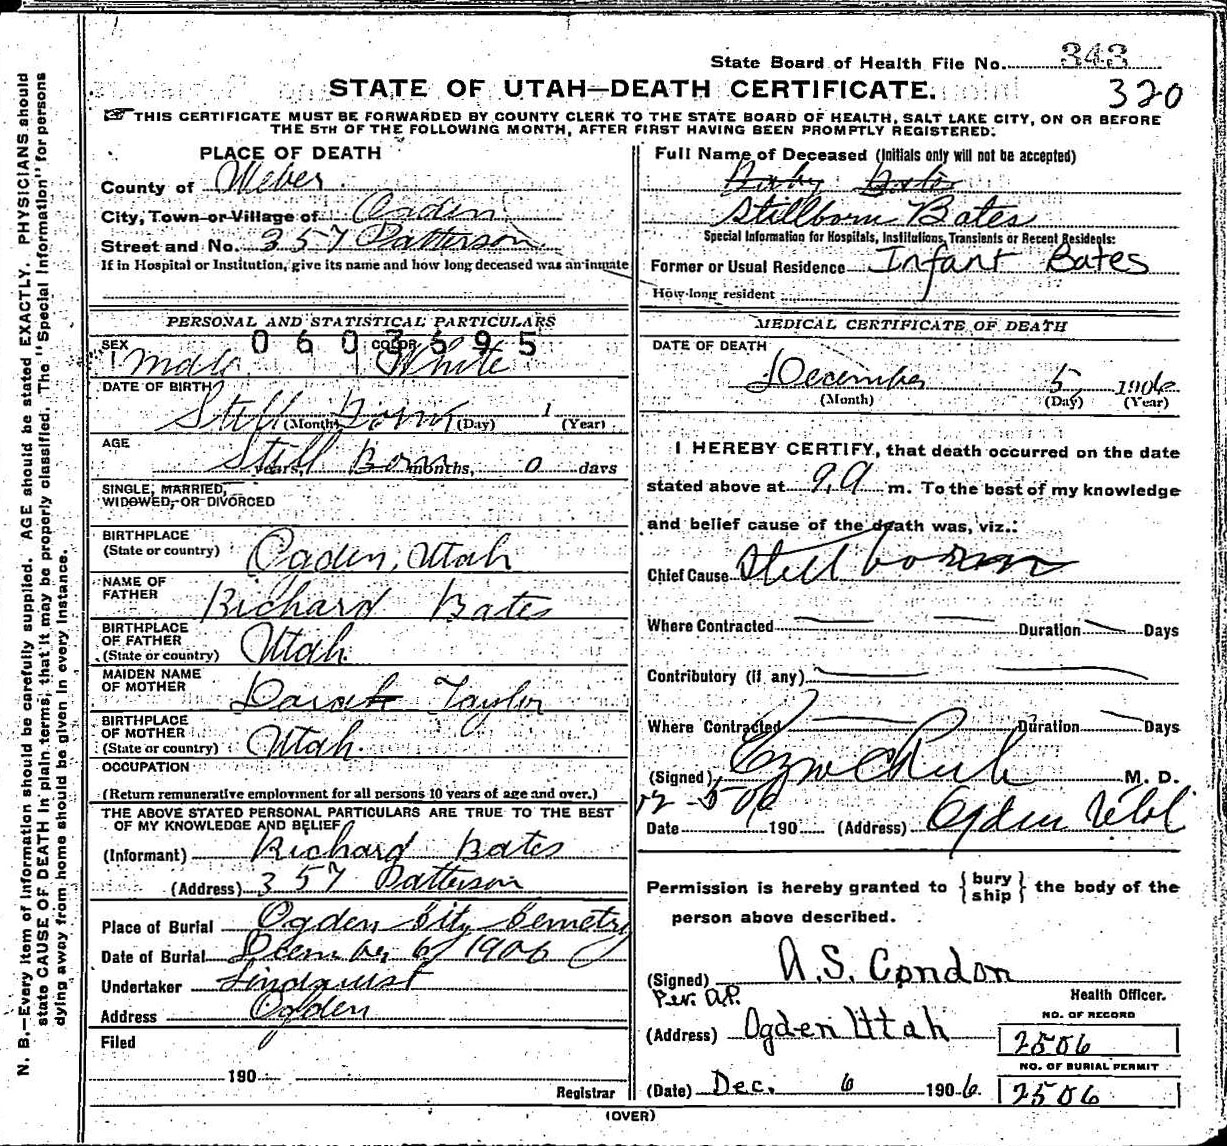 State Board of Health File No. 343
STATE OF UTAH—DEATH CERTIFICATE.
320
THIS CERTIFICATE MUST BE FORWARDED BY COUNTY CLERK TO THE STATE BOARD OF HEALTH, SALT LAKE CITY, ON OR BEFORE
THE 5TH OF THE FOLLOWING MONTH, AFTER FIRST HAVING BEEN PROMPTLY REGISTERED.
PLACE OF DEATH
County of Weber.
City, Town or Village of Ogden
Street and No. 357 Patterson
If in Hospital or Institution, give its name and how long deceased was an inmate
PERSONAL AND STATISTICAL PARTICULARS
0603595
SEX Male COLOR White
DATE OF BIRTH
Still Born 1
(Month) (Day) (Year)
AGE
Still Born years, months, 0 days
SINGLE, MARRIED,
WIDOWED, OR DIVORCED
BIRTHPLACE
(State or country) Ogden, Utah
NAME OF
FATHER Richard Bates
BIRTHPLACE
OF FATHER
(State or country) Utah.
MAIDEN NAME
OF MOTHER Sarah Taylor
BIRTHPLACE
OF MOTHER
(State or country) Utah.
OCCUPATION
(Return remunerative employment for all persons 10 years of age and over.)
THE ABOVE STATED PERSONAL PARTICULARS ARE TRUE TO THE BEST
OF MY KNOWLEDGE AND BELIEF
(Informant) Richard Bates
(Address) 357 Patterson
Place of Burial Ogden City Cemetry
Date of Burial December 6, 1906
Undertaker Lindquist
Address Ogden
Filed
190
Registrar
Full Name of Deceased (Initials only will not be accepted)
Baby Bates
Stillborn Bates
Special Information for Hospitals, Institutions, Transients or Recent Residents:
Former or Usual Residence Infant Bates
How long resident
MEDICAL CERTIFICATE OF DEATH
DATE OF DEATH
December 5 1906
(Month) (Day) (Year)
I HEREBY CERTIFY, that death occurred on the date
stated above at 9 A m. To the best of my knowledge
and belief cause of the death was, viz.:
Chief Cause Still born
Where Contracted Duration Days
Contributory (if any)
Where Contracted Duration Days
(Signed) M. D.
12-5 06
Date 190 (Address) Ogden Utah
Permission is hereby granted to {bury ship} the body of the
person above described.
(Signed) A.S. Condon
Per. A.P. Health Officer.
(Address) Ogden Utah
NO. OF RECORD
2506
NO. OF BURIAL PERMIT
2506
(Date) Dec. 6 1906.
(OVER)
N. B.—Every item of information should be carefully supplied. AGE should be stated EXACTLY. PHYSICIANS should
state CAUSE OF DEATH in plain terms, that it may be properly classified. The "Special Information" for persons
dying away from home should be given in every instance.